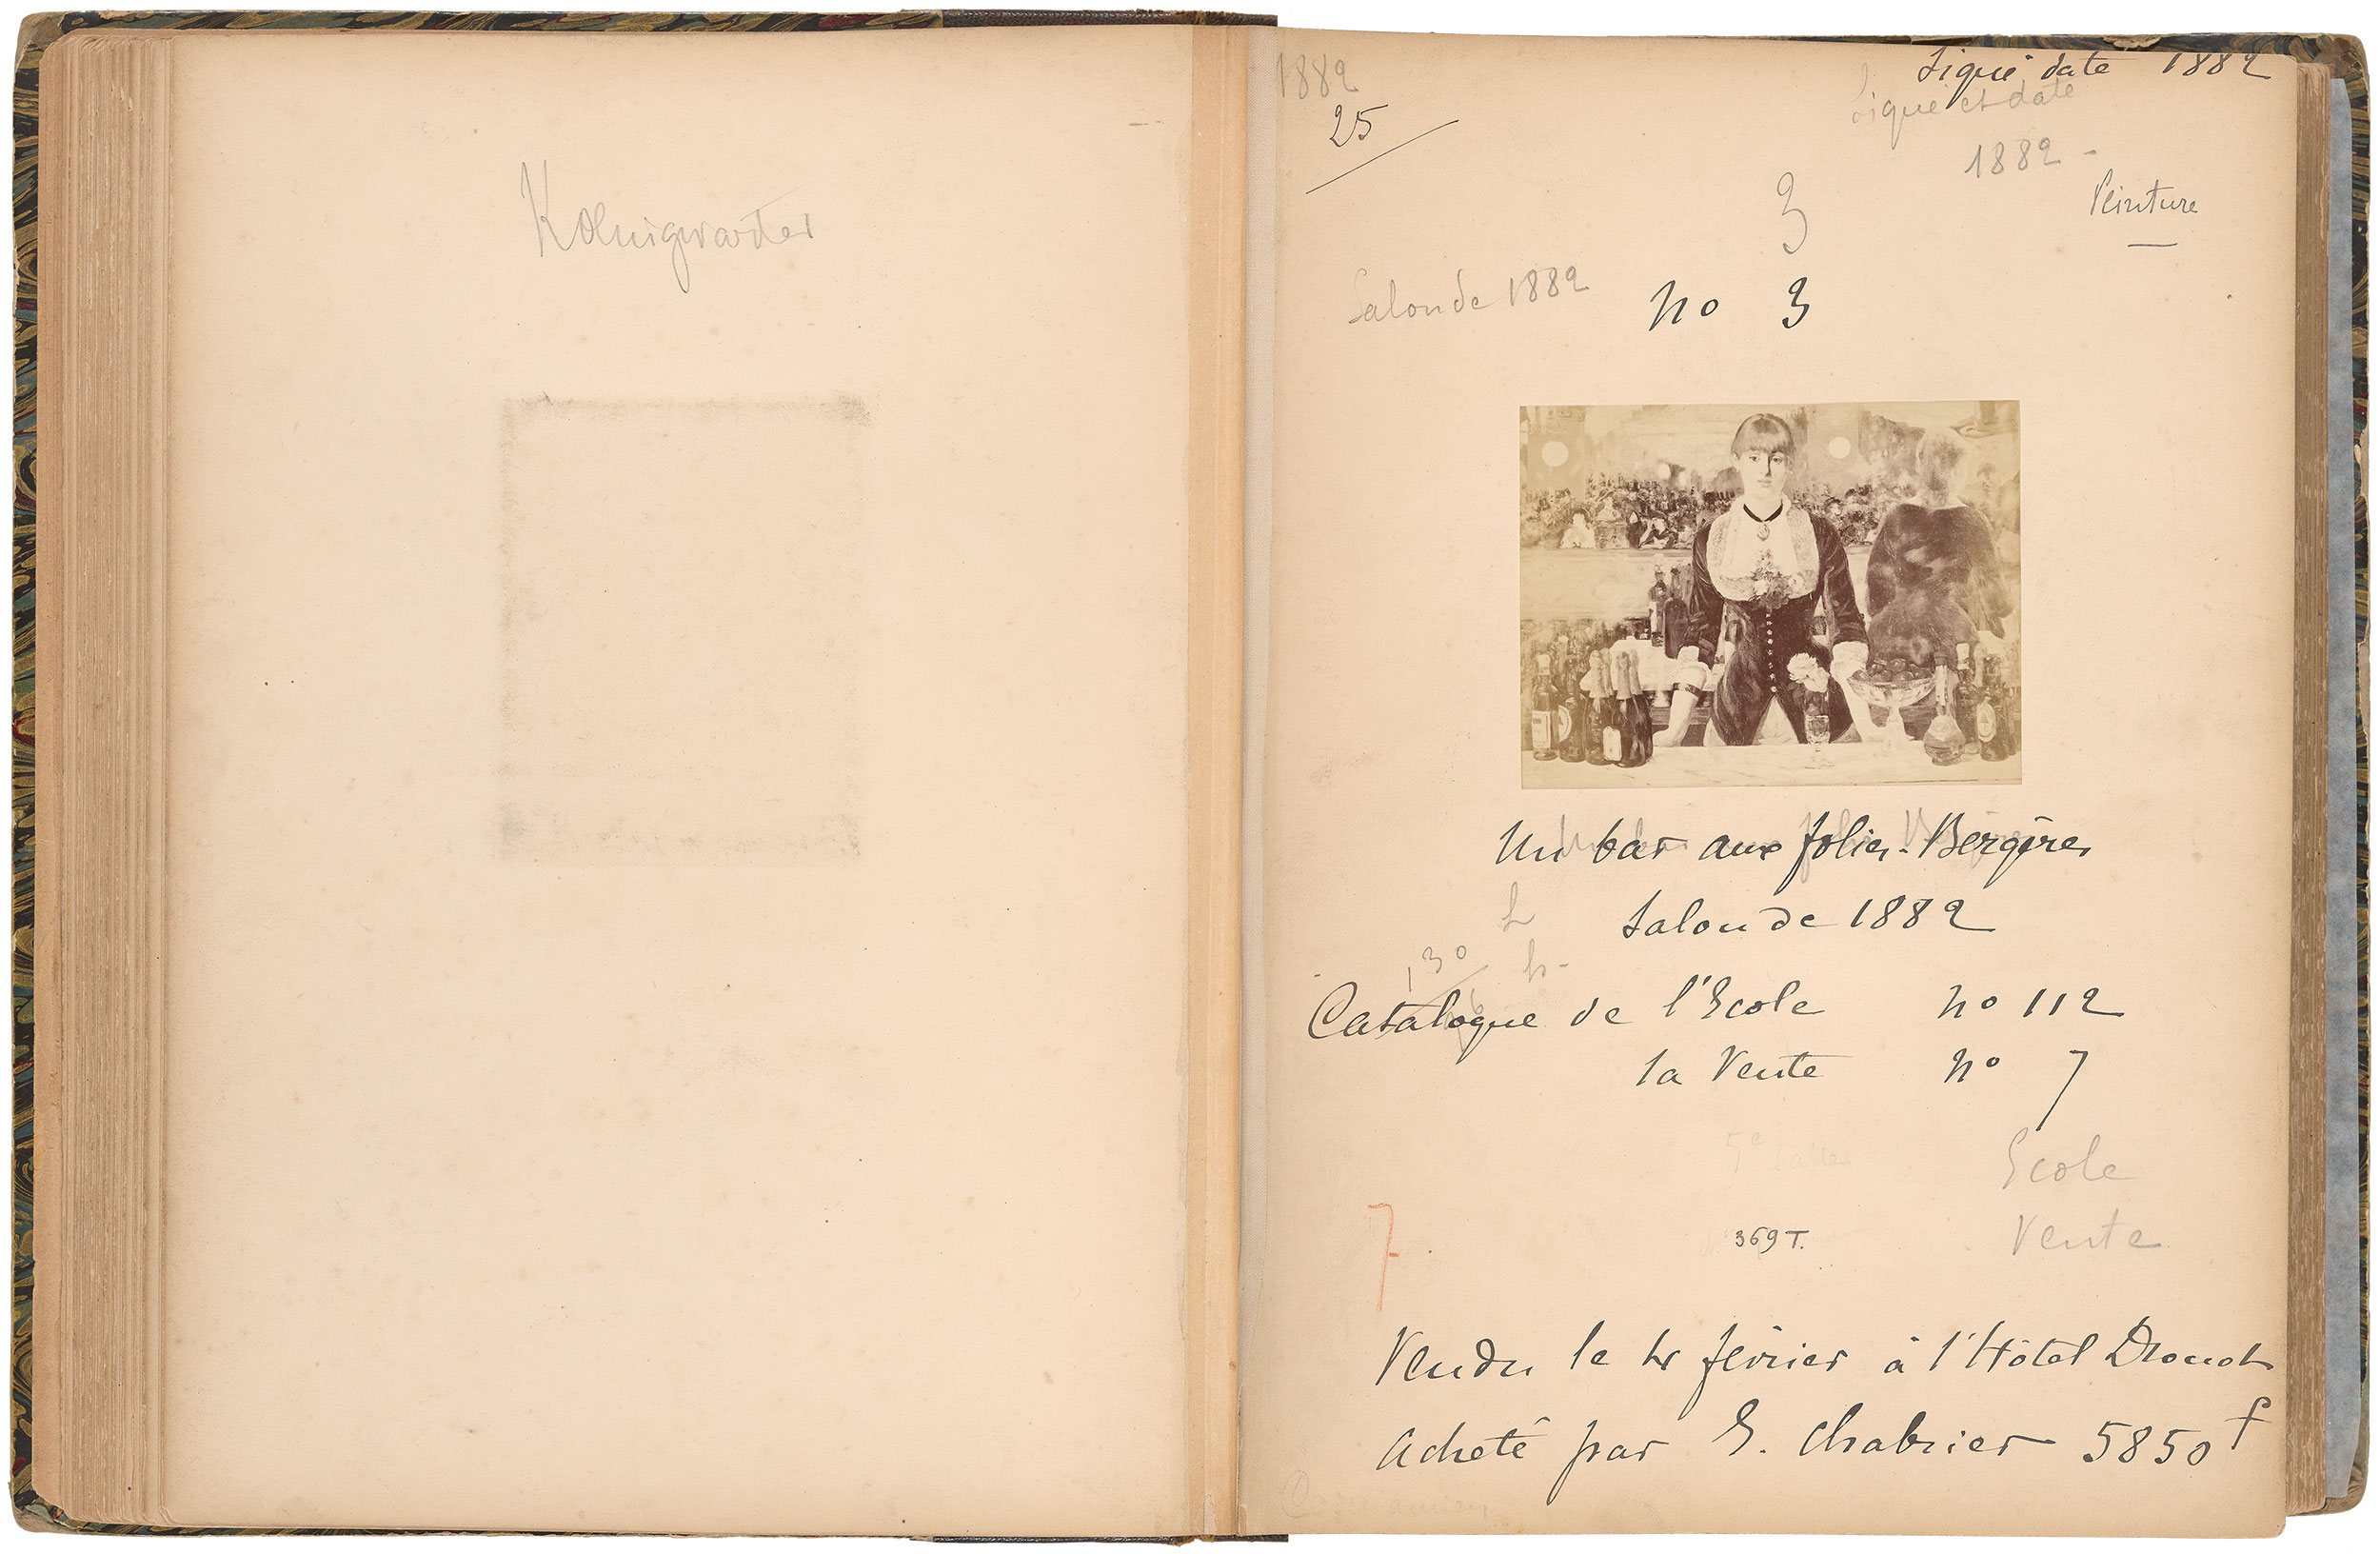 Kœnigwarter
1882
25
Signé daté 1882
Signé et daté
1882 -
Peinture
3
Salon de 1882
no 3
Un bar aux folies-Bergères
Salon de 1882
L
130
h-
Catalogue de l'Ecole no 112
la Vente no 7
Ecole
7
369 T.
Vente
Vendu le 4 février à l'Hôtel Drouot
Acheté par E. Chabrier 5850 f